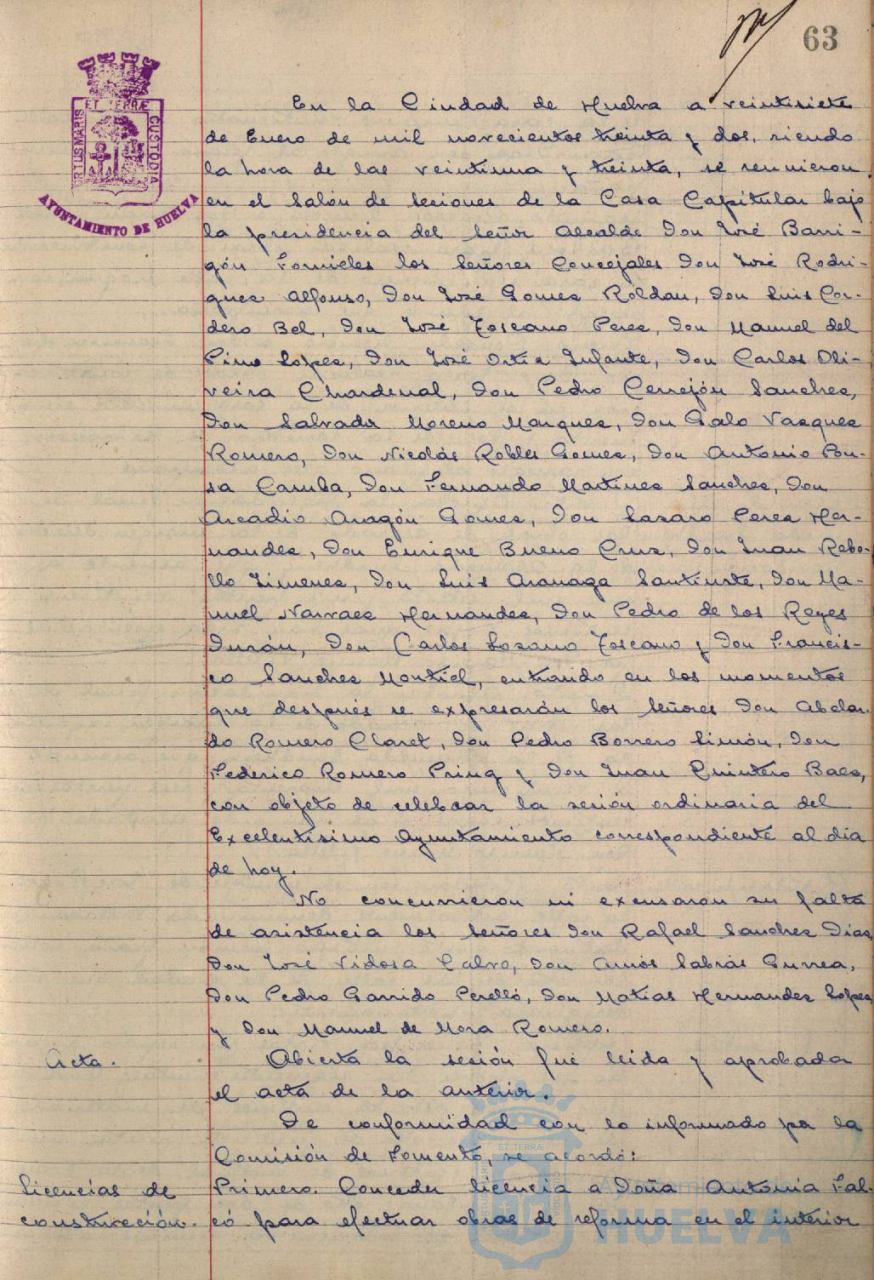 63
PORTUS MARIS ET TERRÆ CUSTODIA
AYUNTAMIENTO DE HUELVA
En la Ciudad de Huelva a veintisiete
de Enero de mil novecientos treinta y dos, siendo
la hora de las veintiuna y treinta, se reunieron
en el Salón de seciones de la Casa Capitular bajo
la presidencia del Señor Alcalde Don José Barri-
gón Fornieles los Señores Concejales Don José Rodri-
guez Alfonso, Don José Gomez Roldan, Don Luis Cor-
dero Bel, Don José Toscano Perez, Don Manuel del
Pino Lopez, Don José Ortiz Infante, Don Carlos Oli-
veira Chardenal, Don Pedro Cerrejón Sanchez,
Don Salvador Moreno Marquez, Don Galo Vazquez
Romero, Don Nicolás Robles Gomez, Don Antonio Pon-
sa Caruba, Don Fernando Martinez Sanchez, Don
Arcadio Aragón Gomez, Don Lazaro Perez Her-
nandez, Don Enrique Bueno Cruz, Don Juan Rebo-
llo Jimenez, Don Luis Aranaga Santiuste, Don Ma-
nuel Narvaez Hernandez, Don Pedro de los Reyes
Durán, Don Carlos Lozano Toscano y Don Francis-
co Sanchez Montiel, entrando en los momentos
que después se expresarán los Señores Don Abelar-
do Romero Claret, Don Pedro Borrero Limón, Don
Federico Romero Pring y Don Juan Quintero Baez,
con objeto de celebrar la sesión ordinaria del
Excelentísimo Ayuntamiento correspondiente al día
de hoy.
No concurrieron ni excusaron su falta
de asistencia los Señores Don Rafael Sanchez Diaz,
Don José Vidosa Calvo, Don Amós Sabrás Gurrea,
Don Pedro Garrido Perelló, Don Matías Hernandez Lopez
y Don Manuel de Mora Romero.
Acta.
Abierta la sesión fué leida y aprobada
el acta de la anterior.
De conformidad con lo informado por la
Comisión de Fomento, se acordó:
Licencias de
construcción.
Primero. Conceder licencia a Doña Antonia Fal-
có para efectuar obras de reforma en el interior
ET TERRÆ
HUELVA